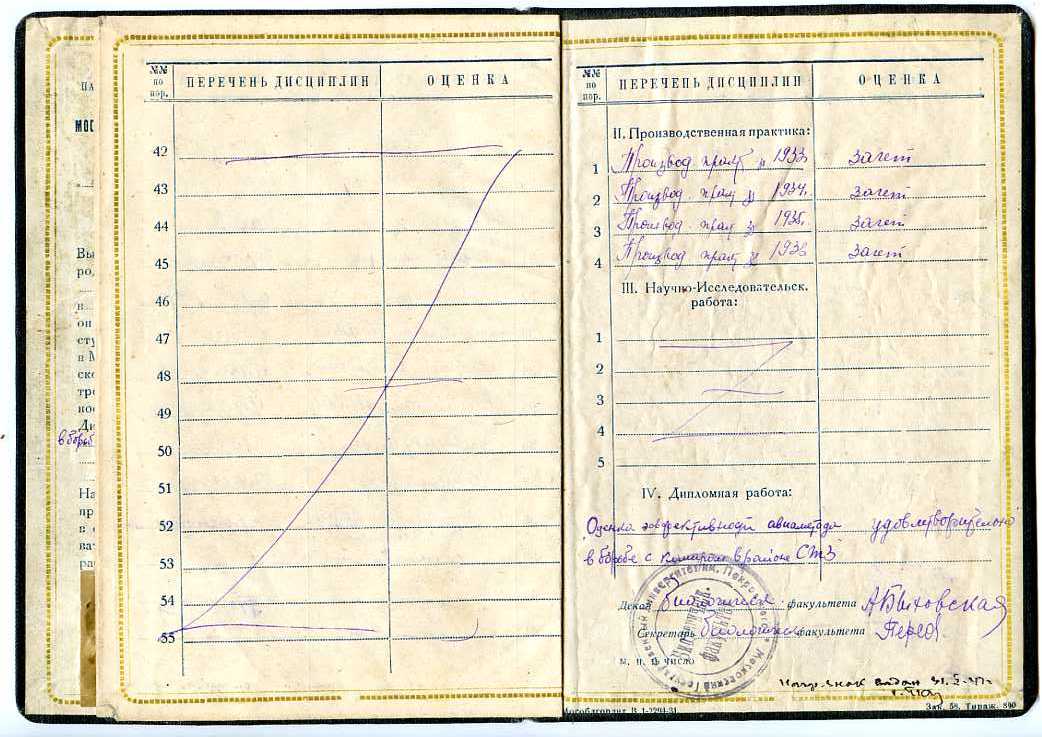 МОС
Вы
ро
в
он
сту
в М
ско
тре
нос
Ди
в борьб
На
пр
в с
ва
ра
№№ по пор. ПЕРЕЧЕНЬ ДИСЦИПЛИН ОЦЕНКА
42
43
44
45
46
47
48
49
50
51
52
53
54
55
№№ по пор. ПЕРЕЧЕНЬ ДИСЦИПЛИН ОЦЕНКА
II. Производственная практика:
1 Производ. практ. 1933 зачет
2 Производ. практ. 1934. зачет
3 Производ. практ. 1935. зачет
4 Производ. практ. 1936 зачет
III. Научно-Исследовательск.
работа:
1
2
3
4
5
IV. Дипломная работа:
Оценка эффективности авиаметода удовлетворительно
в борьбе с комаром в районе СТЗ
Декан биологическ. факультета АБыховская
Секретарь биологическ. факультета
М. П. Число
Московский Государственный Университет им. Покровского
Биологический факультет
Нагр. знак выдан
Мособлгорлит В 1-2294-31
Зак. 58. Тираж. 800